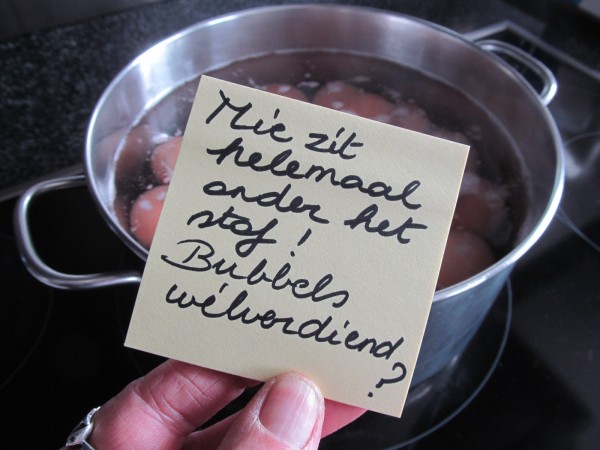 Mic zit
helemaal
onder het
stof!
Bubbels
wélverdiend
?